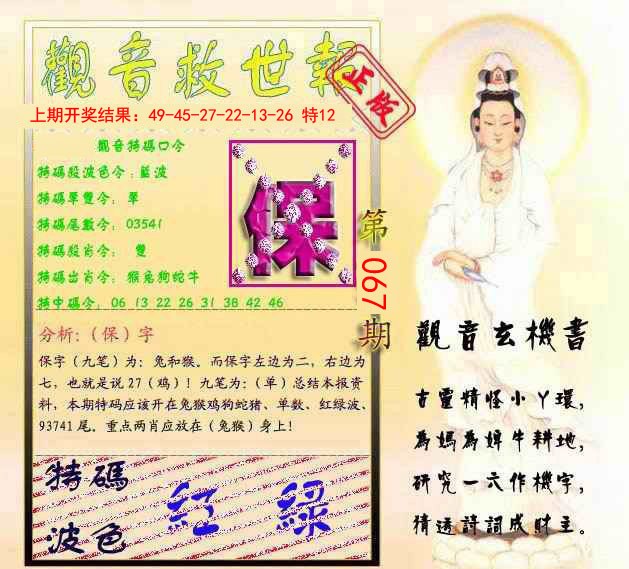 觀音救世報
正版
上期开奖结果：49-45-27-22-13-26 特12
觀音特碼口令
特碼殺波色令：藍波
特碼單雙令： 單
特碼尾數令： 03541
特碼殺肖令： 雙
特碼出肖令： 猴兔狗蛇牛
特中碼令： 06 13 22 26 31 38 42 46
保
第067期
分析:（保）字
保字（九笔）为：兔和猴。而保字左边为二，右边为
七，也就是说 27（鸡）！九笔为：（单）总结本报资
料，本期特码应该开在兔猴鸡狗蛇猪、单数、红绿波、
93741 尾。重点两肖应放在（兔猴）身上!
特碼
波色
紅 綠
觀音玄機書
古靈精怪小丫環，
為媽為婢牛耕地，
研究一六作機字，
猜透詩詞成財主。